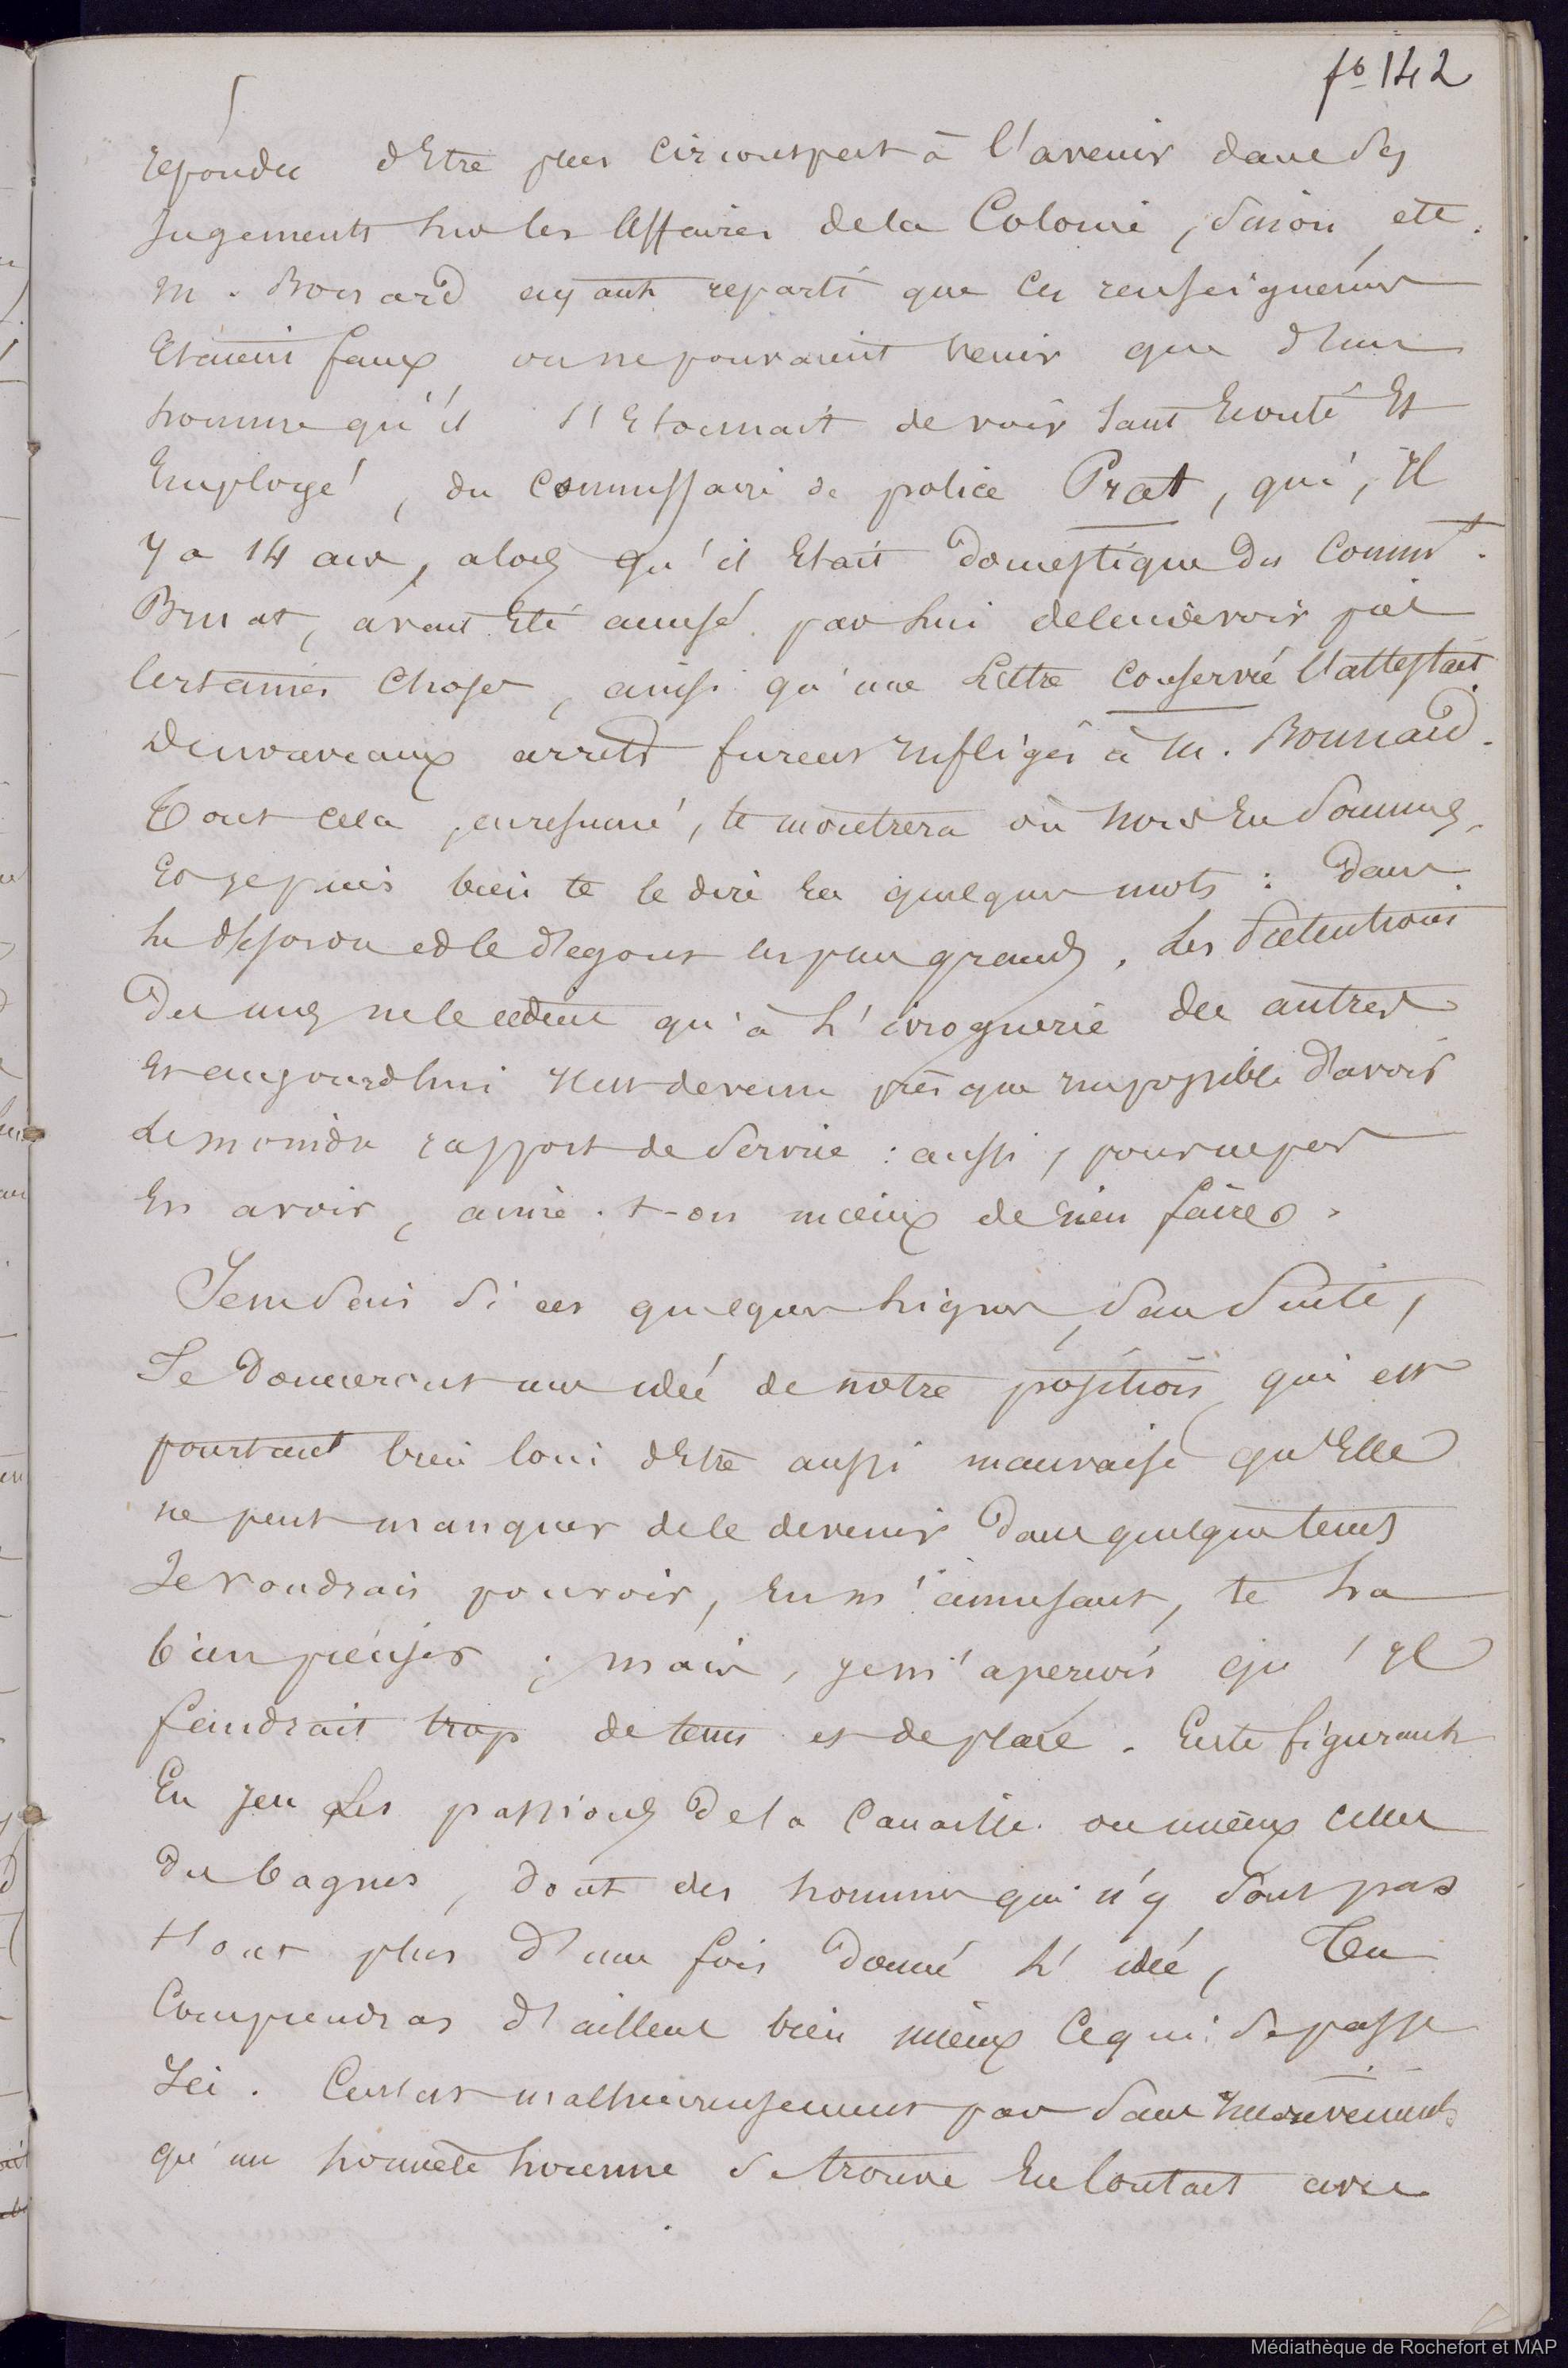 fo 142
répondu d'Etre plus circonspect à l'avenir dans Ses
Jugements sur les Affaires de la Colonie, Sinon etc.
M. Bonnard ayant reparti que ces renseignemens
Etaient faux ou ne pouvaient venir que d'un
homme qu'il s'Etonnait de voir tant Ecouté Et
Employé, du commissaire de police Prat, qui, Il
y a 14 ans, alors qu'il Etait Domestique du Commt.
Bruat, avait Eté accusé par lui de lui avoir pris
Certaines choses, ainsi qu'une Lettre conservée l'attestait
De nouveaux arrets furent Infligés à M. Bonnard.
Tout cela, en resumé, te montrera où nous En Sommes,
Et je puis bien te le dire En quelques mots : Dans
le desordre et le degout les plus grands. Les Pretentions
Des uns ne le cedent qu'à L'ivrognerie des autres
Et aujourd'hui Il est devenu presque Impossible D'avoir
Le moindre rapport de Service : aussi, pour ne pas
En avoir, aime-t-on mieux de rien faire.
Je ne Sais Si ces quelques lignes, Sans Suite,
Te Donneront une idée de notre position qui est
pourtant bien loin d'Etre aussi mauvaise qu'Elle
ne peut manquer de le devenir Dans quelque tems
Je voudrais pouvoir, En m'amusant, te la
bien préciser ; mais, je m'aperçois qu'Il
faudrait trop de tems et de place. En te figurant
En jeu Les passions De la Canaille ou mieux celles
Du bagnes, dont des hommes qui n'y Sont pas
t'ont plus D'une fois Donné L'idée, Tu
Comprendras D'ailleurs bien mieux Ce qui Se passe
Ici. Ce n'est malheureusement pas Sans Inconvenients
qu'un honnete homme Se trouve En Contact avec
Médiathèque de Rochefort et MAP